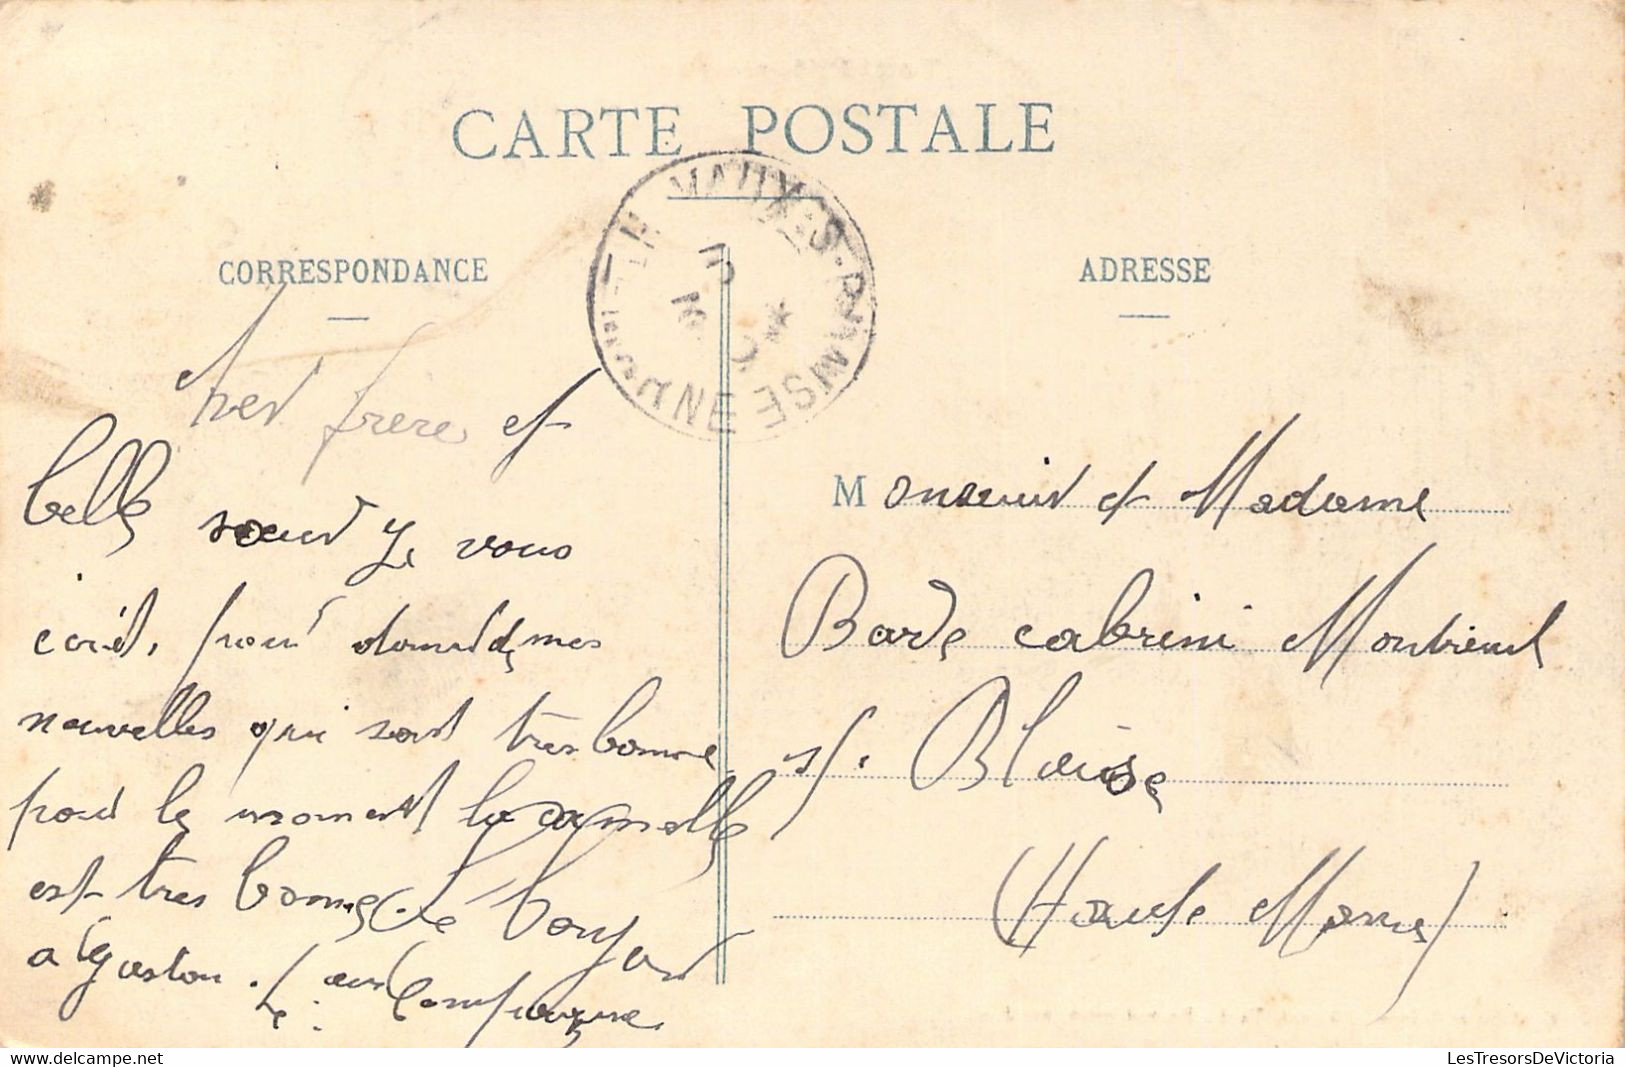 CARTE POSTALE
CORRESPONDANCE
ADRESSE
cher frere et
belle soeur Je vous
ecrit, pour donner des mes
nouvelles qui sont tres bonne
pour le moment la camelle
est tres bonne Le bonjour
a Gaston.
Compagne
Monsieur et Madame
Barde cabrini Montreuil
s/. Blaise
(Haute Marne)
LesTresorsDeVictoria